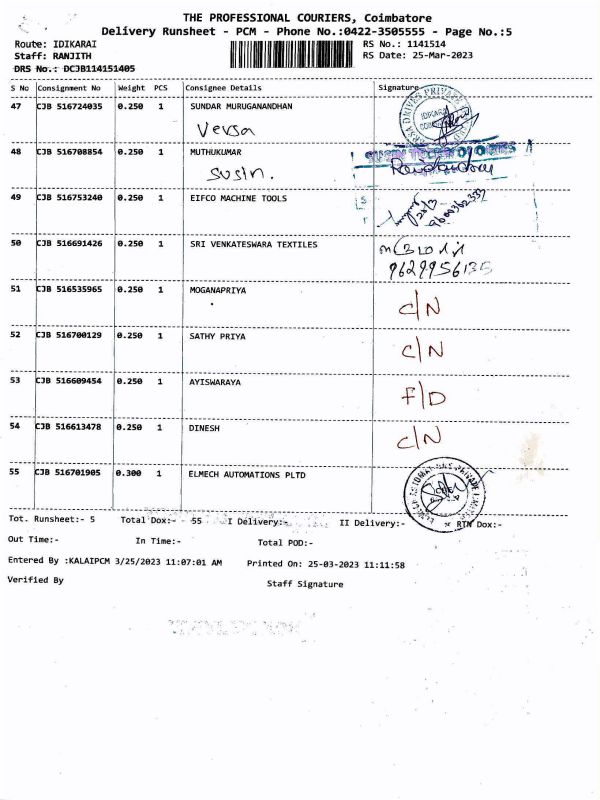 THE PROFESSIONAL COURIERS, Coimbatore
Delivery Runsheet - PCM - Phone No.:0422-3505555 - Page No.:5
Route: IDIKARAI RS No.: 1141514
Staff: RANJITH RS Date: 25-Mar-2023
DRS No.: DCJB114151405
S No Consignment No Weight PCS Consignee Details Signature
47 CJB 516724035 0.250 1 SUNDAR MURUGANANDHAN
Versa
48 CJB 516708854 0.250 1 MUTHUKUMAR
SUSIN TECHNOLOGIES
Susin.
49 CJB 516753240 0.250 1 EIFCO MACHINE TOOLS
50 CJB 516691426 0.250 1 SRI VENKATESWARA TEXTILES
9629956135
51 CJB 516535965 0.250 1 MOGANAPRIYA
C/N
52 CJB 516700129 0.250 1 SATHY PRIYA
C/N
53 CJB 516609454 0.250 1 AYISWARAYA
F/D
54 CJB 516613478 0.250 1 DINESH
C/N
55 CJB 516701905 0.300 1 ELMECH AUTOMATIONS PLTD
Tot. Runsheet:- 5 Total Dox:- 55 I Delivery:- II Delivery:- RTN Dox:-
Out Time:- In Time:- Total POD:-
Entered By :KALAIPCM 3/25/2023 11:07:01 AM Printed On: 25-03-2023 11:11:58
Verified By Staff Signature